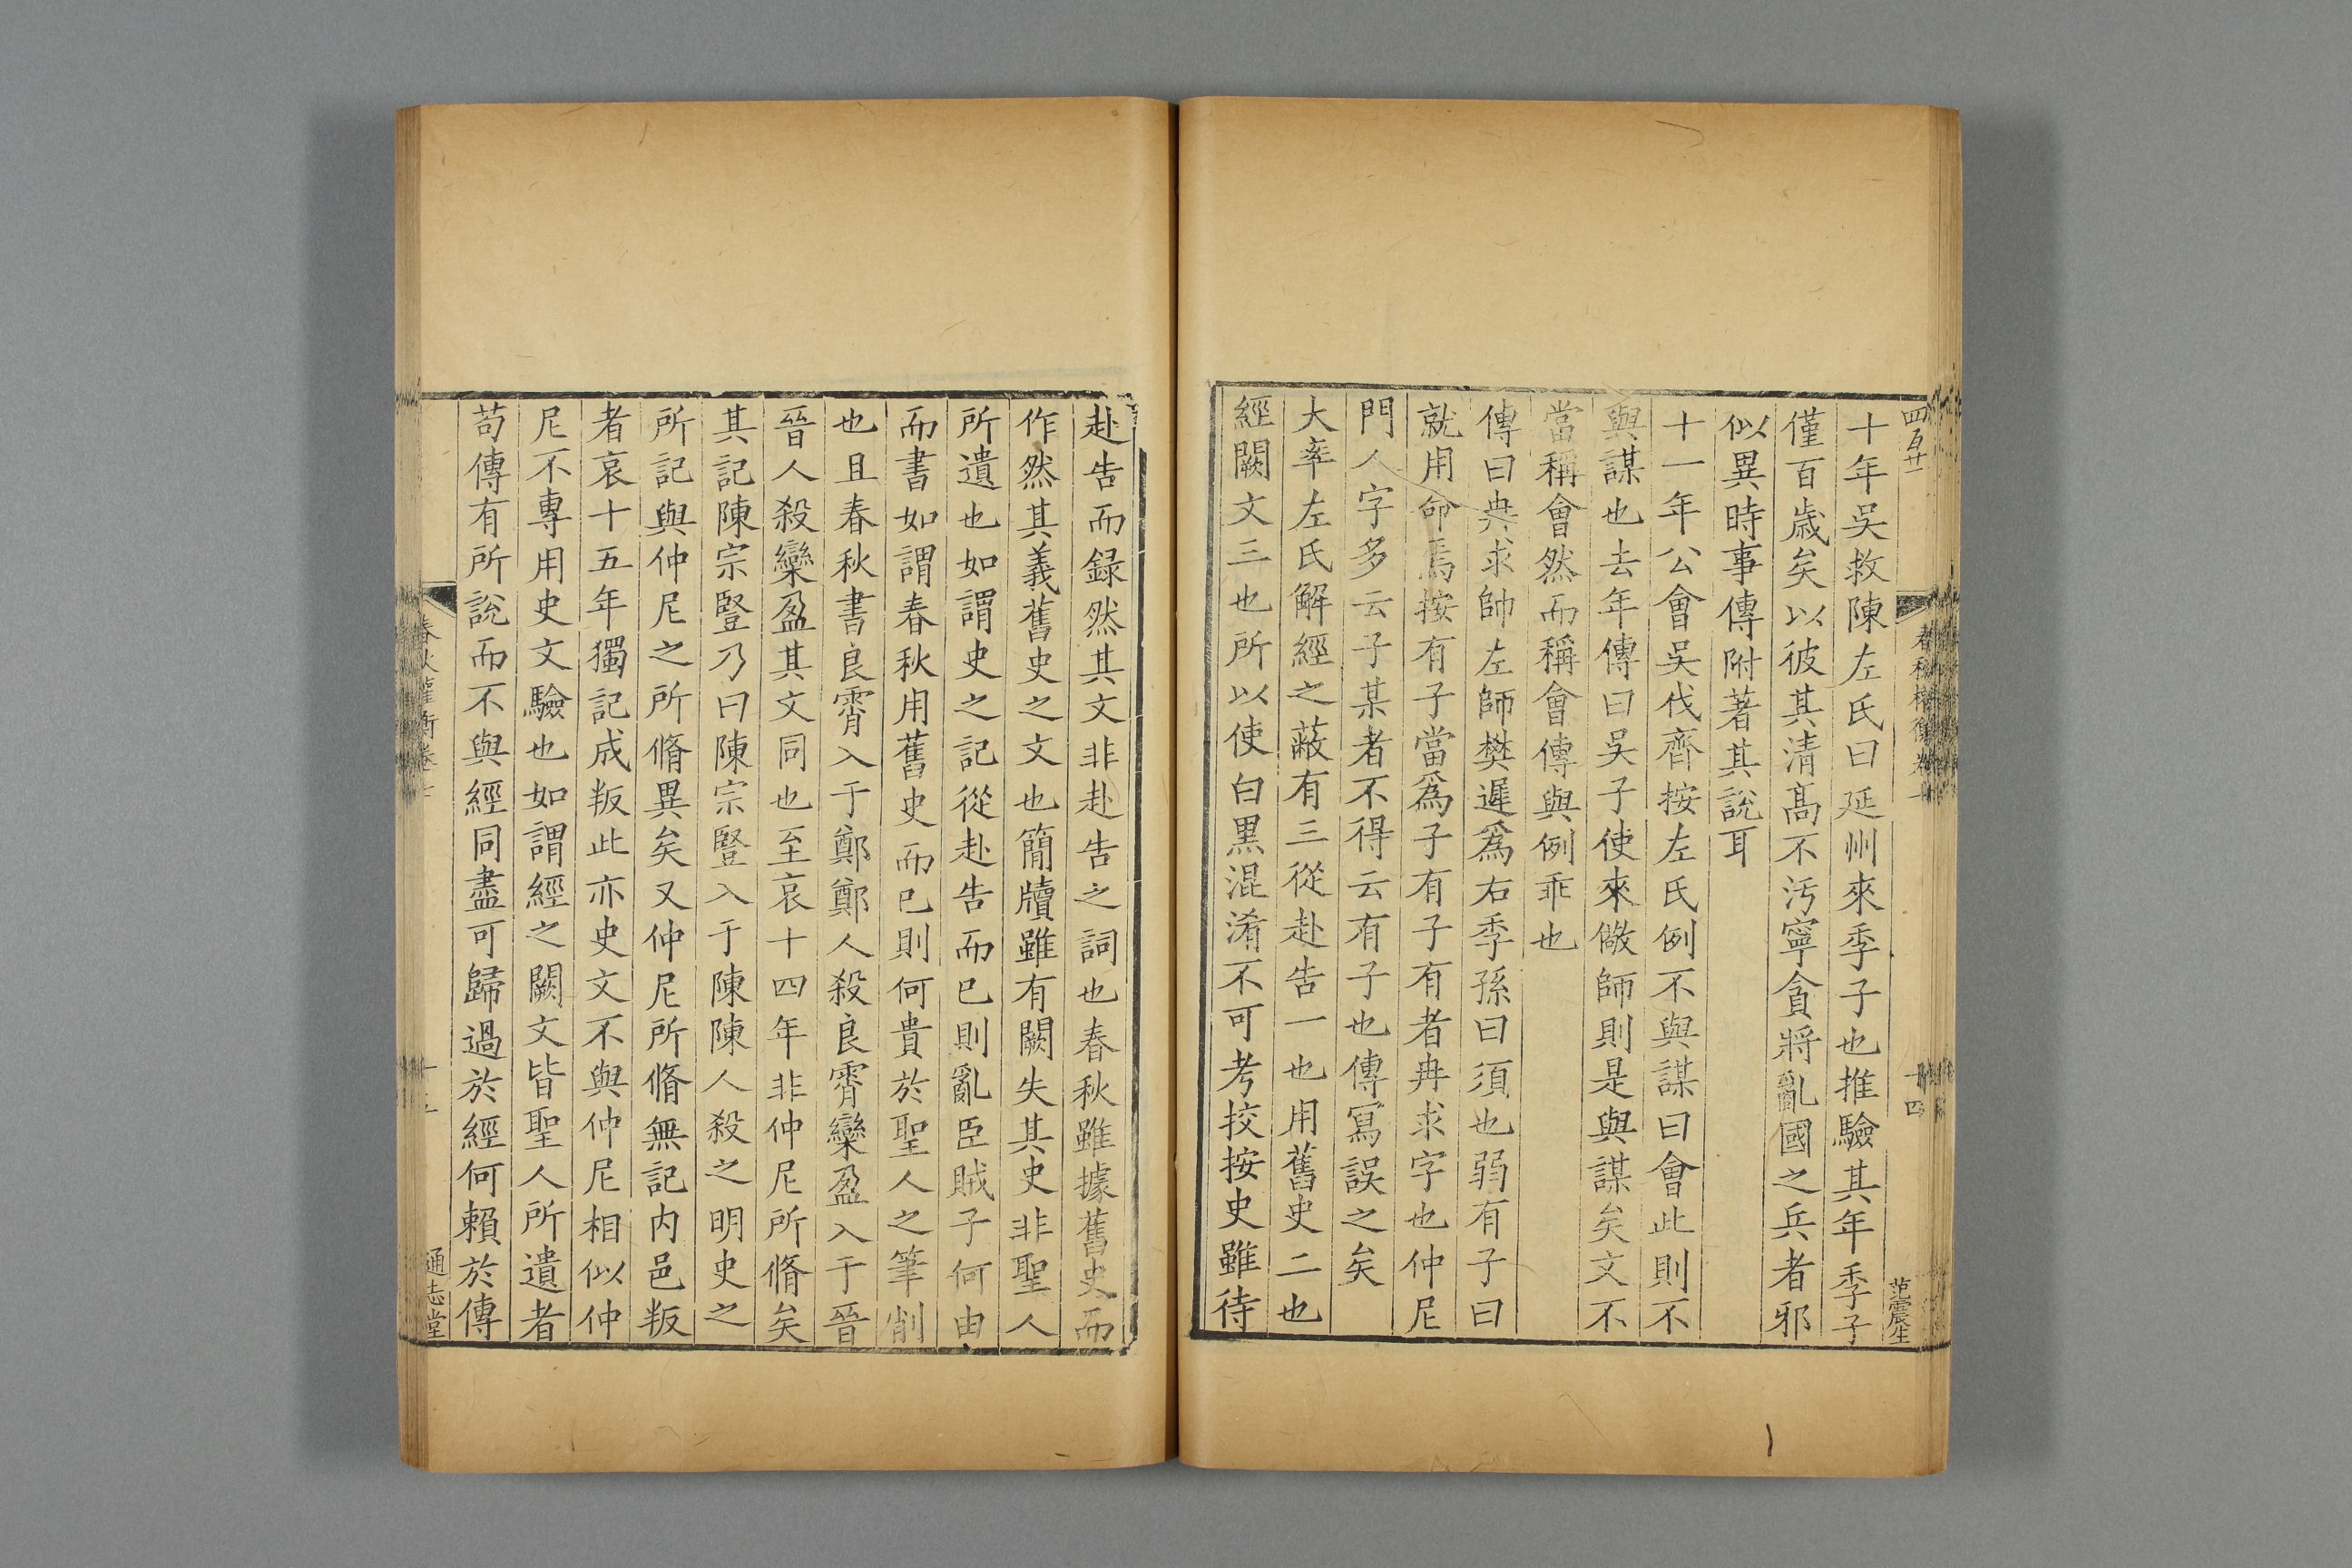 四百廿一
春秋權衡卷
十四
范震生
十年吳救陳左氏曰延州來季子也推驗其年季子
僅百歲矣以彼其清髙不汚寧貪將亂國之兵者邪
似異時事傳附著其說耳
十一年公會吳伐齊按左氏例不與謀曰會此則不
與謀也去年傳曰吳子使來儆師則是與謀矣文不
當稱會然而稱會傳與例乖也
傳曰冉求帥左師樊遲爲右季孫曰須也弱有子曰
就用命焉按有子當爲子有子有者冉求字也仲尼
門人字多云子某者不得云有子也傳寫誤之矣
大率左氏解經之蔽有三從赴告一也用舊史二也
經闕文三也所以使白黒混淆不可考挍按史雖待
赴告而録然其文非赴告之詞也春秋雖據舊史而
作然其義舊史之文也簡牘雖有闕失其史非聖人
所遺也如謂史之記從赴告而已則亂臣賊子何由
而書如謂春秋用舊史而已則何貴於聖人之筆削
也且春秋書良霄入于鄭鄭人殺良霄欒盈入于晉
晉人殺欒盈其文同也至哀十四年非仲尼所脩矣
其記陳宗豎乃曰陳宗豎入于陳陳人殺之明史之
所記與仲尼之所脩異矣又仲尼所脩無記内邑叛
者哀十五年獨記成叛此亦史文不與仲尼相似仲
尼不專用史文驗也如謂經之闕文皆聖人所遺者
苟傳有所說而不與經同盡可歸過於經何賴於傳
春秋權衡卷七
十五
通志堂